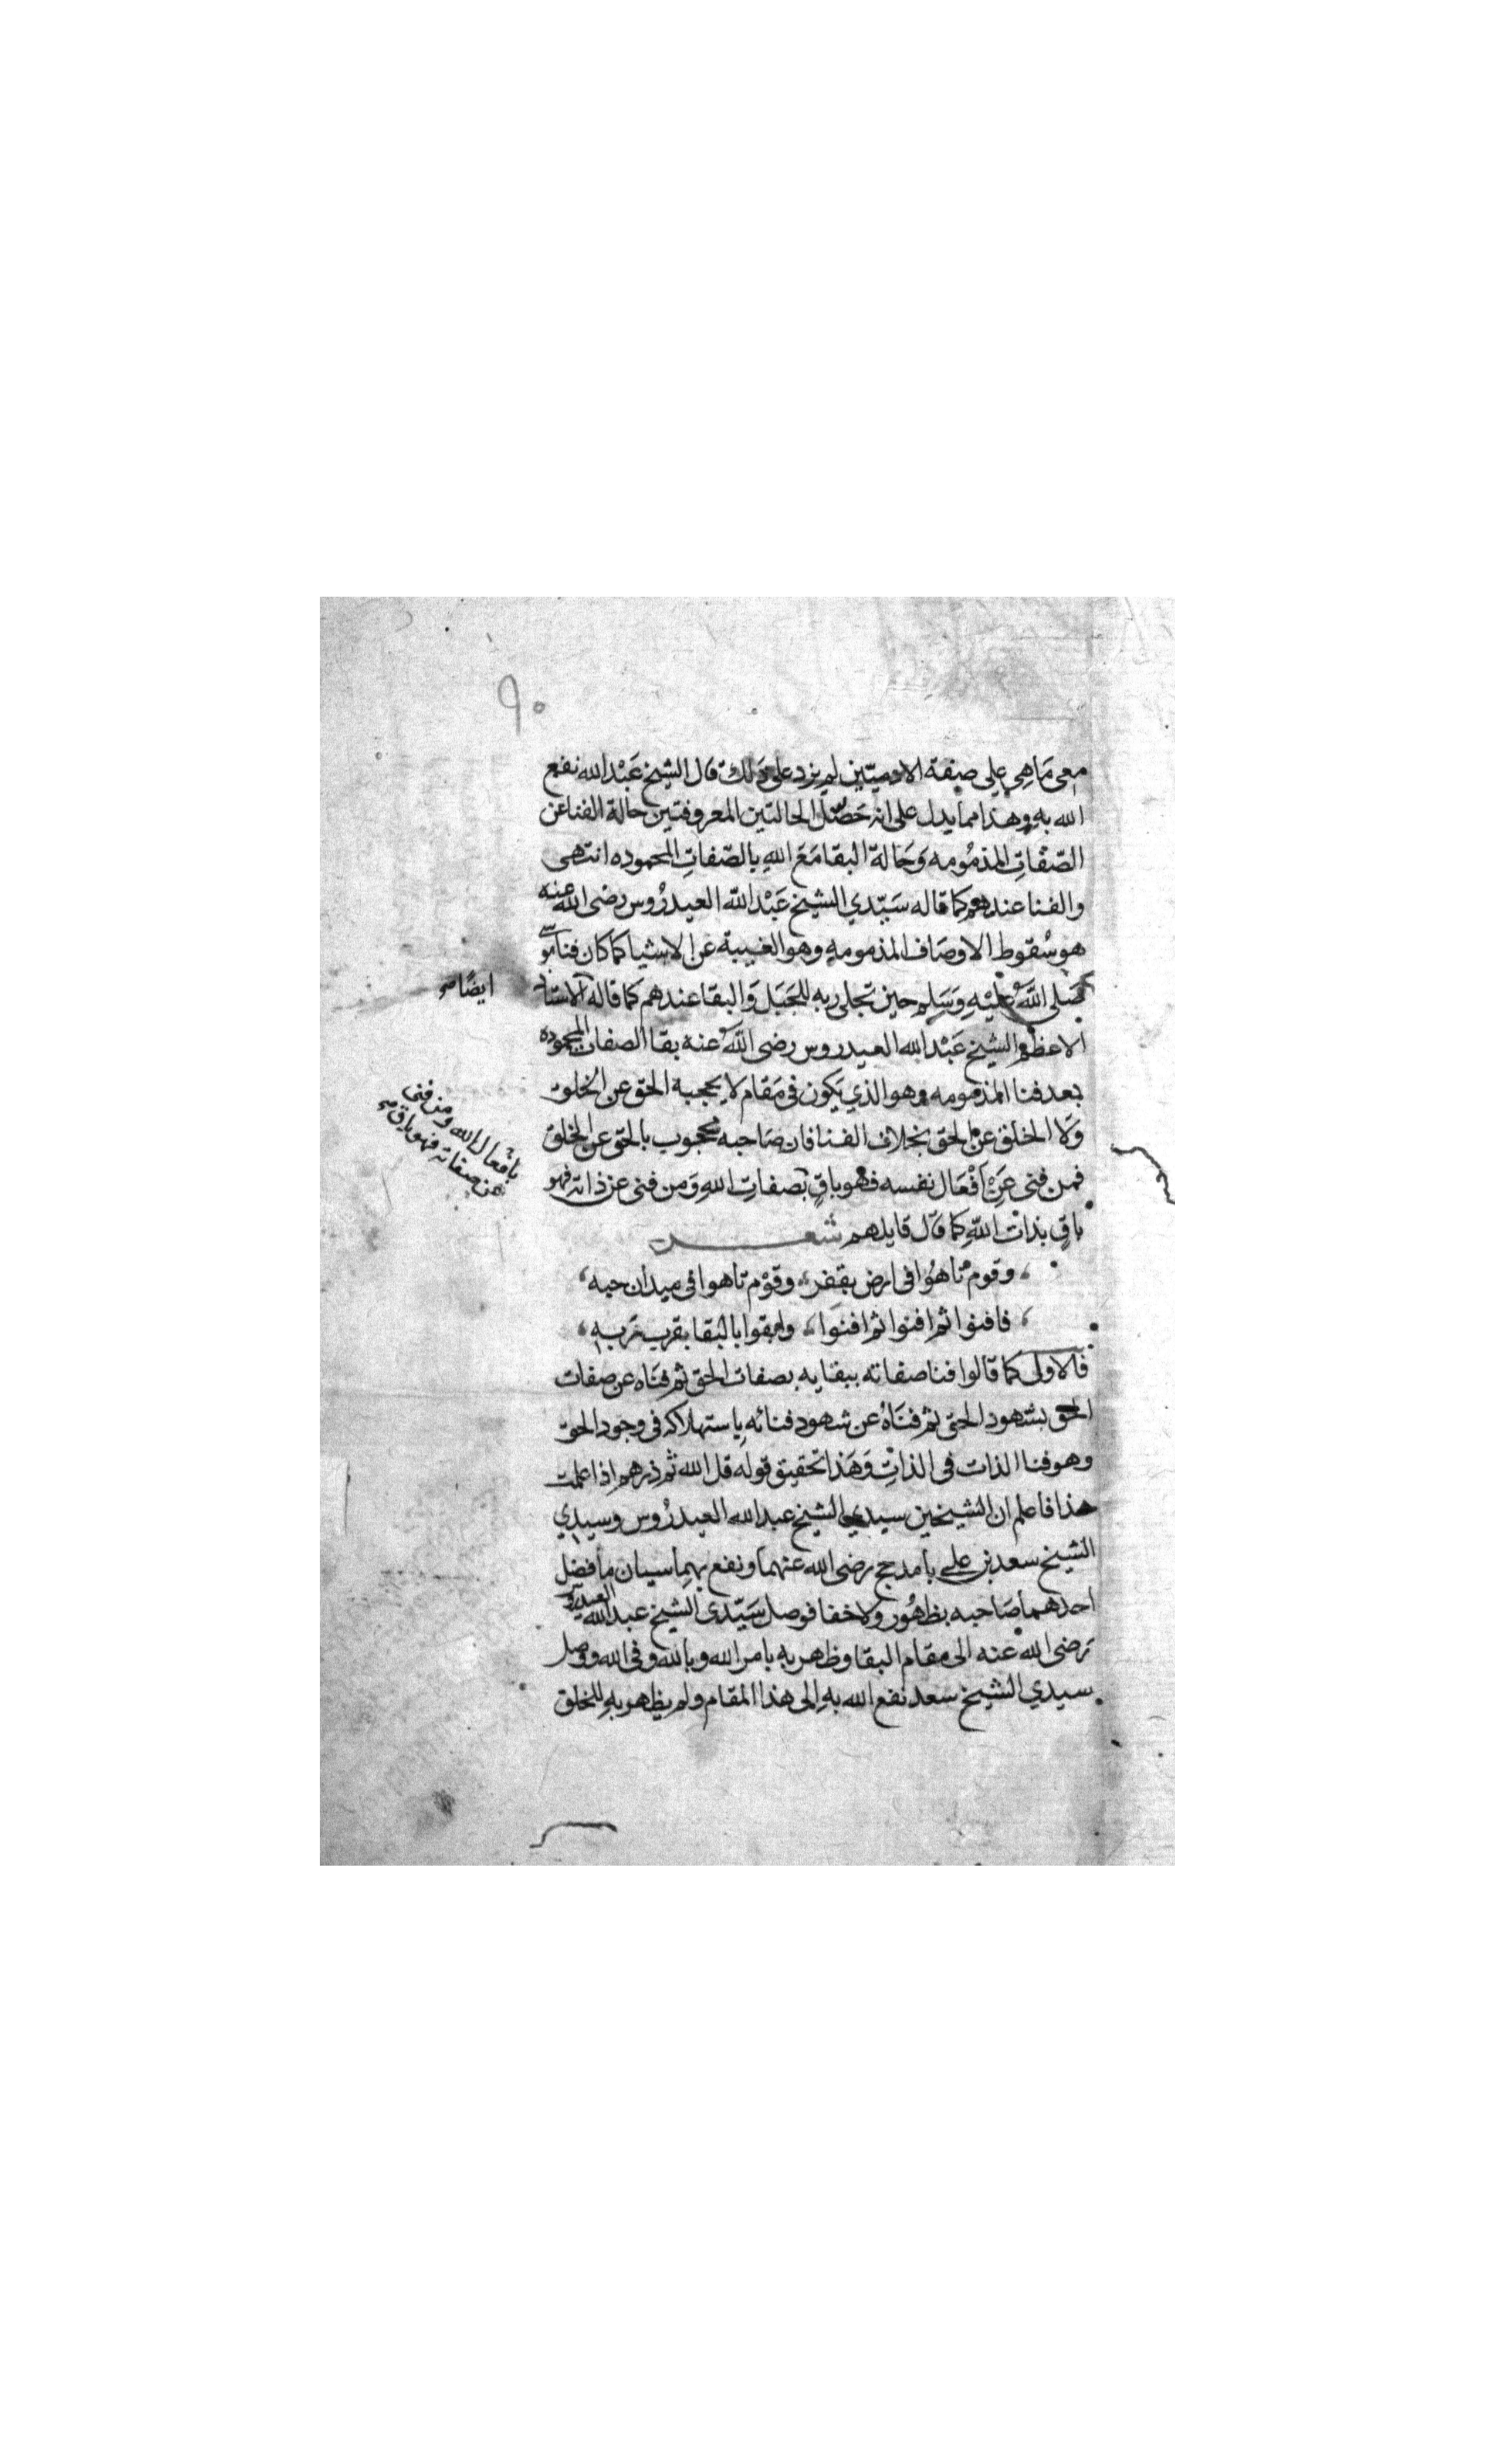 ٩٠
معي ما هي علي صفة الادميين لم يزد على ذلك قال الشيخ عَبْد الله نفع
الله بهِ وهذا مما يدل على انه حَصَّل الحالتين المعروفتين حالة الفنا عن
الصّفاتِ المذمُومه وَحَالة البقا مَعَ اللهِ بالصّفاتِ المحموده انتهى
والفنا عندهم كما قاله سَيّدي الشيخ عَبْد الله العيدرُوس رضى الله عنه
هو سُقوط الاوصَاف المذمومهِ وهو الغيبة عن الاشيا كما كان فنا موسى
صَلى اللَّهُ عَليْهِ وَسَلم حين تجلى ربه للجَبَل وَالبقا عندهم كما قاله الاستاذ
ايضًا صح
الاعظم الشيخ عَبْد الله العيدروس رضى اللَّهُ عنه بقا الصفات المحموده
بعد فنا المذمومه وهو الذي يَكون في مَقام لا يحجبه الحق عن الخلق
وَلا الخلق عن الحق بخلاف الفنا فان صَاحبه محجوب بالحق عن الخلق
فمن فنى عَنْ اَفْعَال نفسه فهو باقٍ بصفاتِ اللهِ وَمن فنى عن ذاته فهو
بافعال الله ومن فنى
عن صفاته فهو باق صح
باقٍ بذات اللهِ كما قال قايلهم شعـــر
وقوم تاهُوا في ارض بقفر، وقوْم تاهوا في ميدان حبه،
فافنوا ثم افنوا ثم افنوا، وابقوا بالبقا بقرب ربه،
فالاولى كما قالوا فنا صفاته ببقايه بصفات الحق ثم فنَاه عن صفات
الحق بشهود الحق ثم فنَاهُ عن شهود فنائه باستهلاكه في وجود الحق
وهو فنا الذات في الذاتِ وَهَذا تحقيق قوله قل الله ثم ذرهم اذا علمت
هذا فاعلم ان الشيخين سيدي الشيخ عبد الله العيدرُوس وسيدي
الشيخ سعد بن علي بامدحج رضى الله عنهما ونفع بهما سيان ما فضل
احدهما صَاحبه بظهُور وَلا خفا فوصل سَيّدى الشيخ عبد الله العيدروس
رَضى الله عنه الى مقام البقا وظهر بهِ بامر الله وبالله وفى الله ووصل
سيدي الشيخ سعد نفع الله بهِ الى هذا المقام ولم يظهر بهِ للخلق